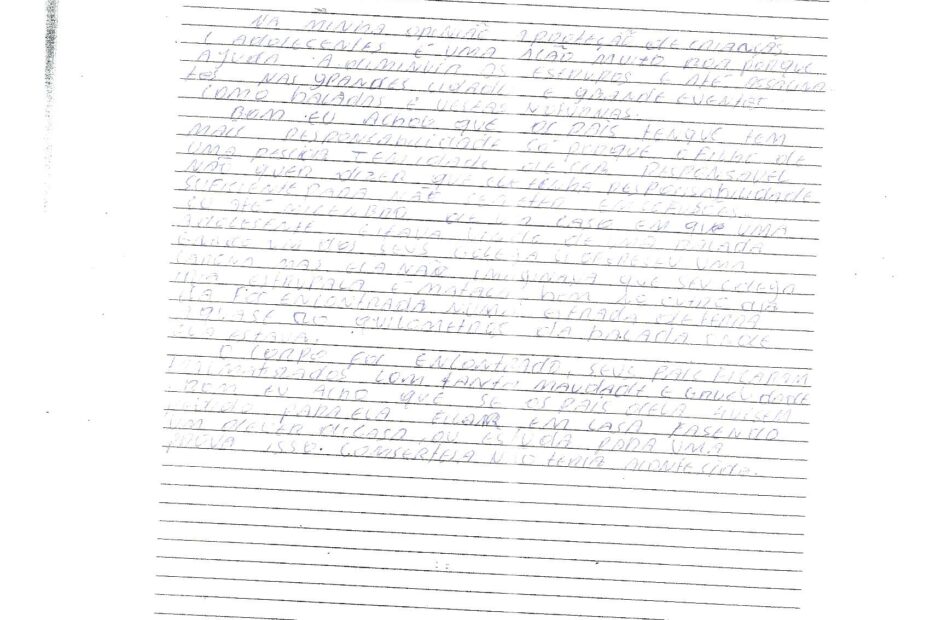 NA MINHA OPINIÃO, A PROTEÇÃO DE CRIANÇAS
E ADOLECENTES E UMA AÇÃO MUITO BOA porque
AJUDA A DIMINUIR OS ESTRUPOS E ATÉ ASSACINA
TOS NAS GRANDES CIDADE E GRANDE EVENTOS
COMO BALADAS E FESTAS NOTURNAS.
BOM EU ACHO QUE OS PAIS TENQUE TEM
MAIS RESPONCABILIDADE SÓ PORQUE O FILHO DE
UMA TEM IDADE DE SER RESPONSAVEL
NÃO QUER DIZER QUE ELE TENHA RESPONSABILIDADE
SUFICIENTE PARA NÃO
EU ATÉ DE UM CASO EM QUE UMA
ADOLESENTE ESTAVA DE UMA BALADA
UM DOS SEUS COLEGA OFERESEU UMA
CARONA MAS ELA NÃO IMAGINAVA QUE SEU COLEGA
IRIA ESTRUPALA E MATALA, BEM NO OUTRO DIA
ELA FOI ENCONTRADA NUMA ETRADA DE TERRA
QUASE QUILOMETROS DA BALADA ONDE
ELA ESTAVA.
O CORPO FOI ENCONTRADO, SEUS PAIS FICARAM
TRAUMATIZADOS COM TANTA MAUDADE E CRUELDADE
BOM EU ACHO QUE SE OS PAIS DELA
PARA ELA FICAR EM CASA FASENDO
UM DEVER DE CASA OU ESTUDA PARA UMA
PROVA ISSO COMSERTEZA NÃO TERIA ACONTESIDO.